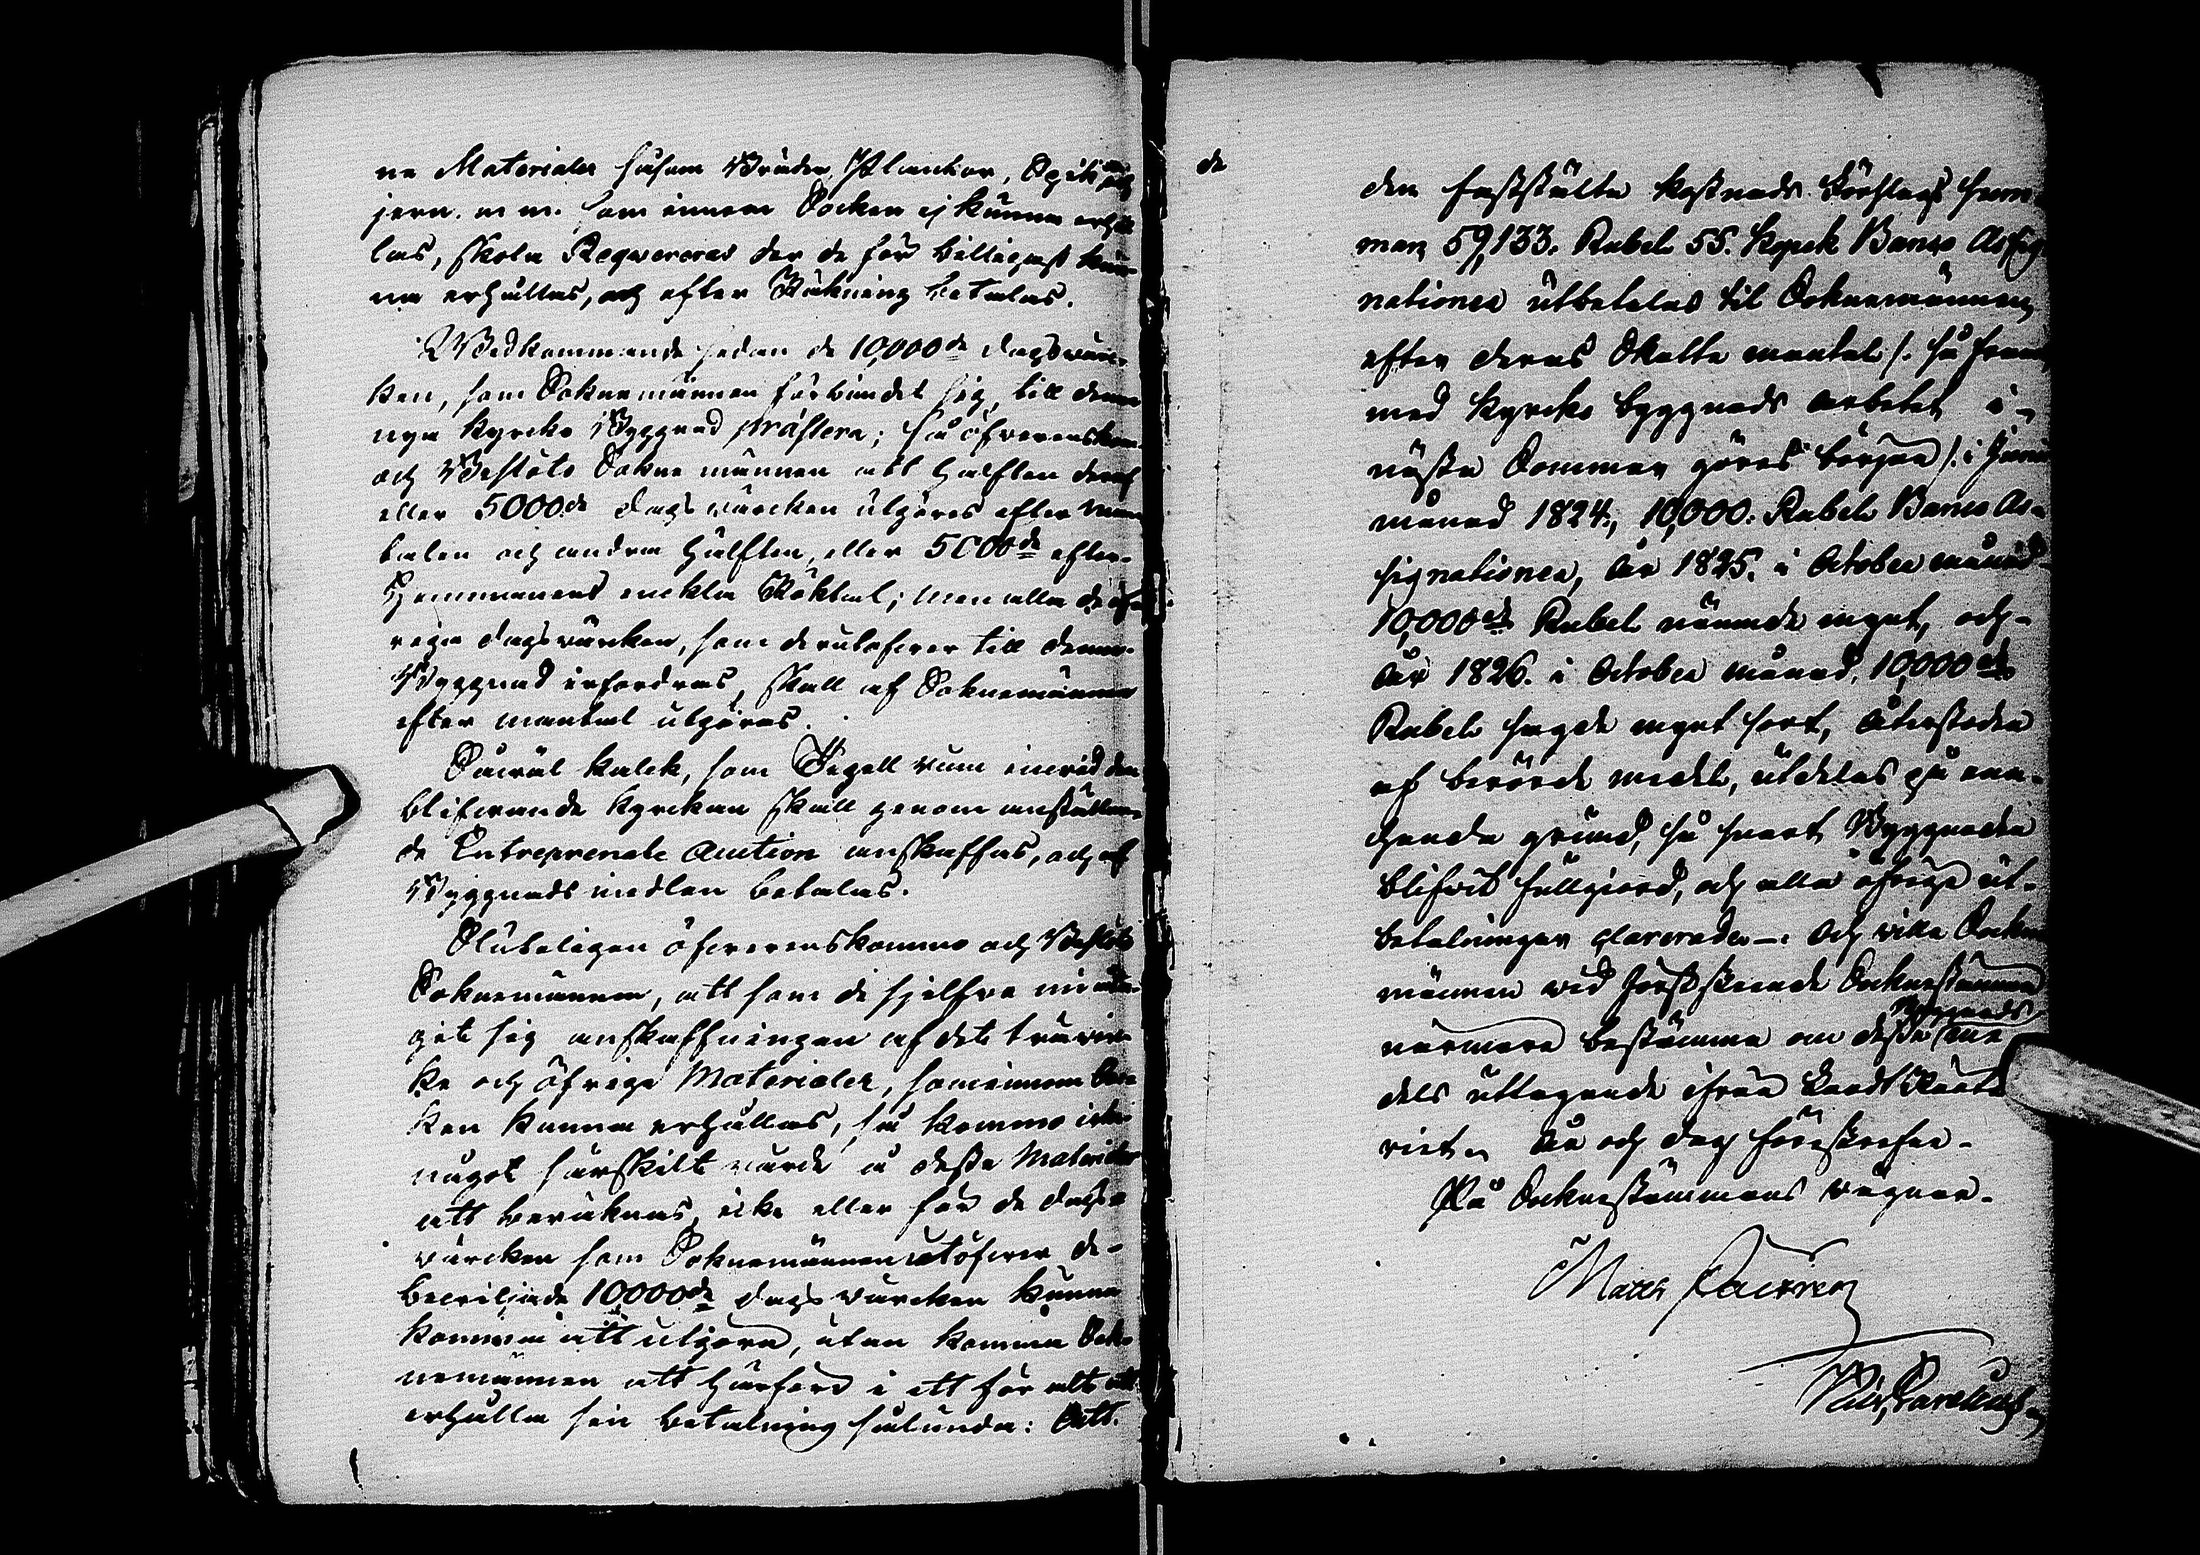 ne Materialer såsom Bräder, Plankor, Spik och
jern. m m. som innom Socken ej kunna erhål
las, skola Reqvireras der de för billigast kun
na erhållas, och efter Räkning betalas.
Wedkommande sedan de 10,000de dagsvär
ken, som Soknemännen förbundet sig, till denna
nya kyrko Byggnad præstera; så öfverenskom
och Beslöto Soknemännen att hälften deraf
eller 5000de dagsvärcken utgöres efter man
talen och andra hälften, eller 5000de efter
Hemmanens enckla Röktal; men alla de öf
riga dagsvärcken, som derutöfver till denna
Byggnad erfordras, skall af Soknemännen
efter mantal utgöras.
Såväl kalck, som Tegell rum invid den
blifvande kyrckan skall genom anställan
de Entreprenade Auction anskaffas, och af
Byggnads medlen betalas.
Sluteligen öfverenskommo och Beslöto
Soknemännen, att som de sjelfva
git sig anskaffningen af det trävir
ke och öfrige Materialer, som innom Soc
ken kunna erhållas, så kommo icke
något särskilt värde å desse Materialer
att beräknas, icke eller för de dags
värcken som Soknemännen utöfver de
beviljade 10000de dags värcken kunna
komma att utgöra, utan komma Sok
nemännen att härföre i ett för alt att
erhålla sin betalning sålunda: Att
de
den fastställta kostnads Förslags Sum
man 59,133. Rubel 55. Kopek Banco Assig
nationer utbetalas til Soknemännen
efter deras Skatte mantal /: så framt
med kyrcko byggnads arbetet i
nästa Sommar göres början /: i Junii
månad 1824, 10,000. Rubel Banco As
signationer, År 1825. i October månad
10,000de Rubel nämnde mynt, och
År 1826. i October månad, 10,000de
Rubel sagde mynt sort, Återstoden
af berörde medel, utdelas på enn
handa grund, så snart Byggnaden
blifvit fullgiord, och alla öfrige ut
betalningar clarerade. Och ville Sokne
männen vid först skeende Soknestämma
närmare bestämma om desse Byggnads me
dels uttagande ifrån Landt Ränte
riet. År och dag föreskrefne.
På Soknestämmans vägnar.
Matts